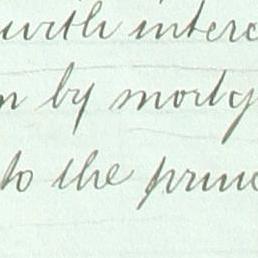 with interes
n by mortg
to the princ